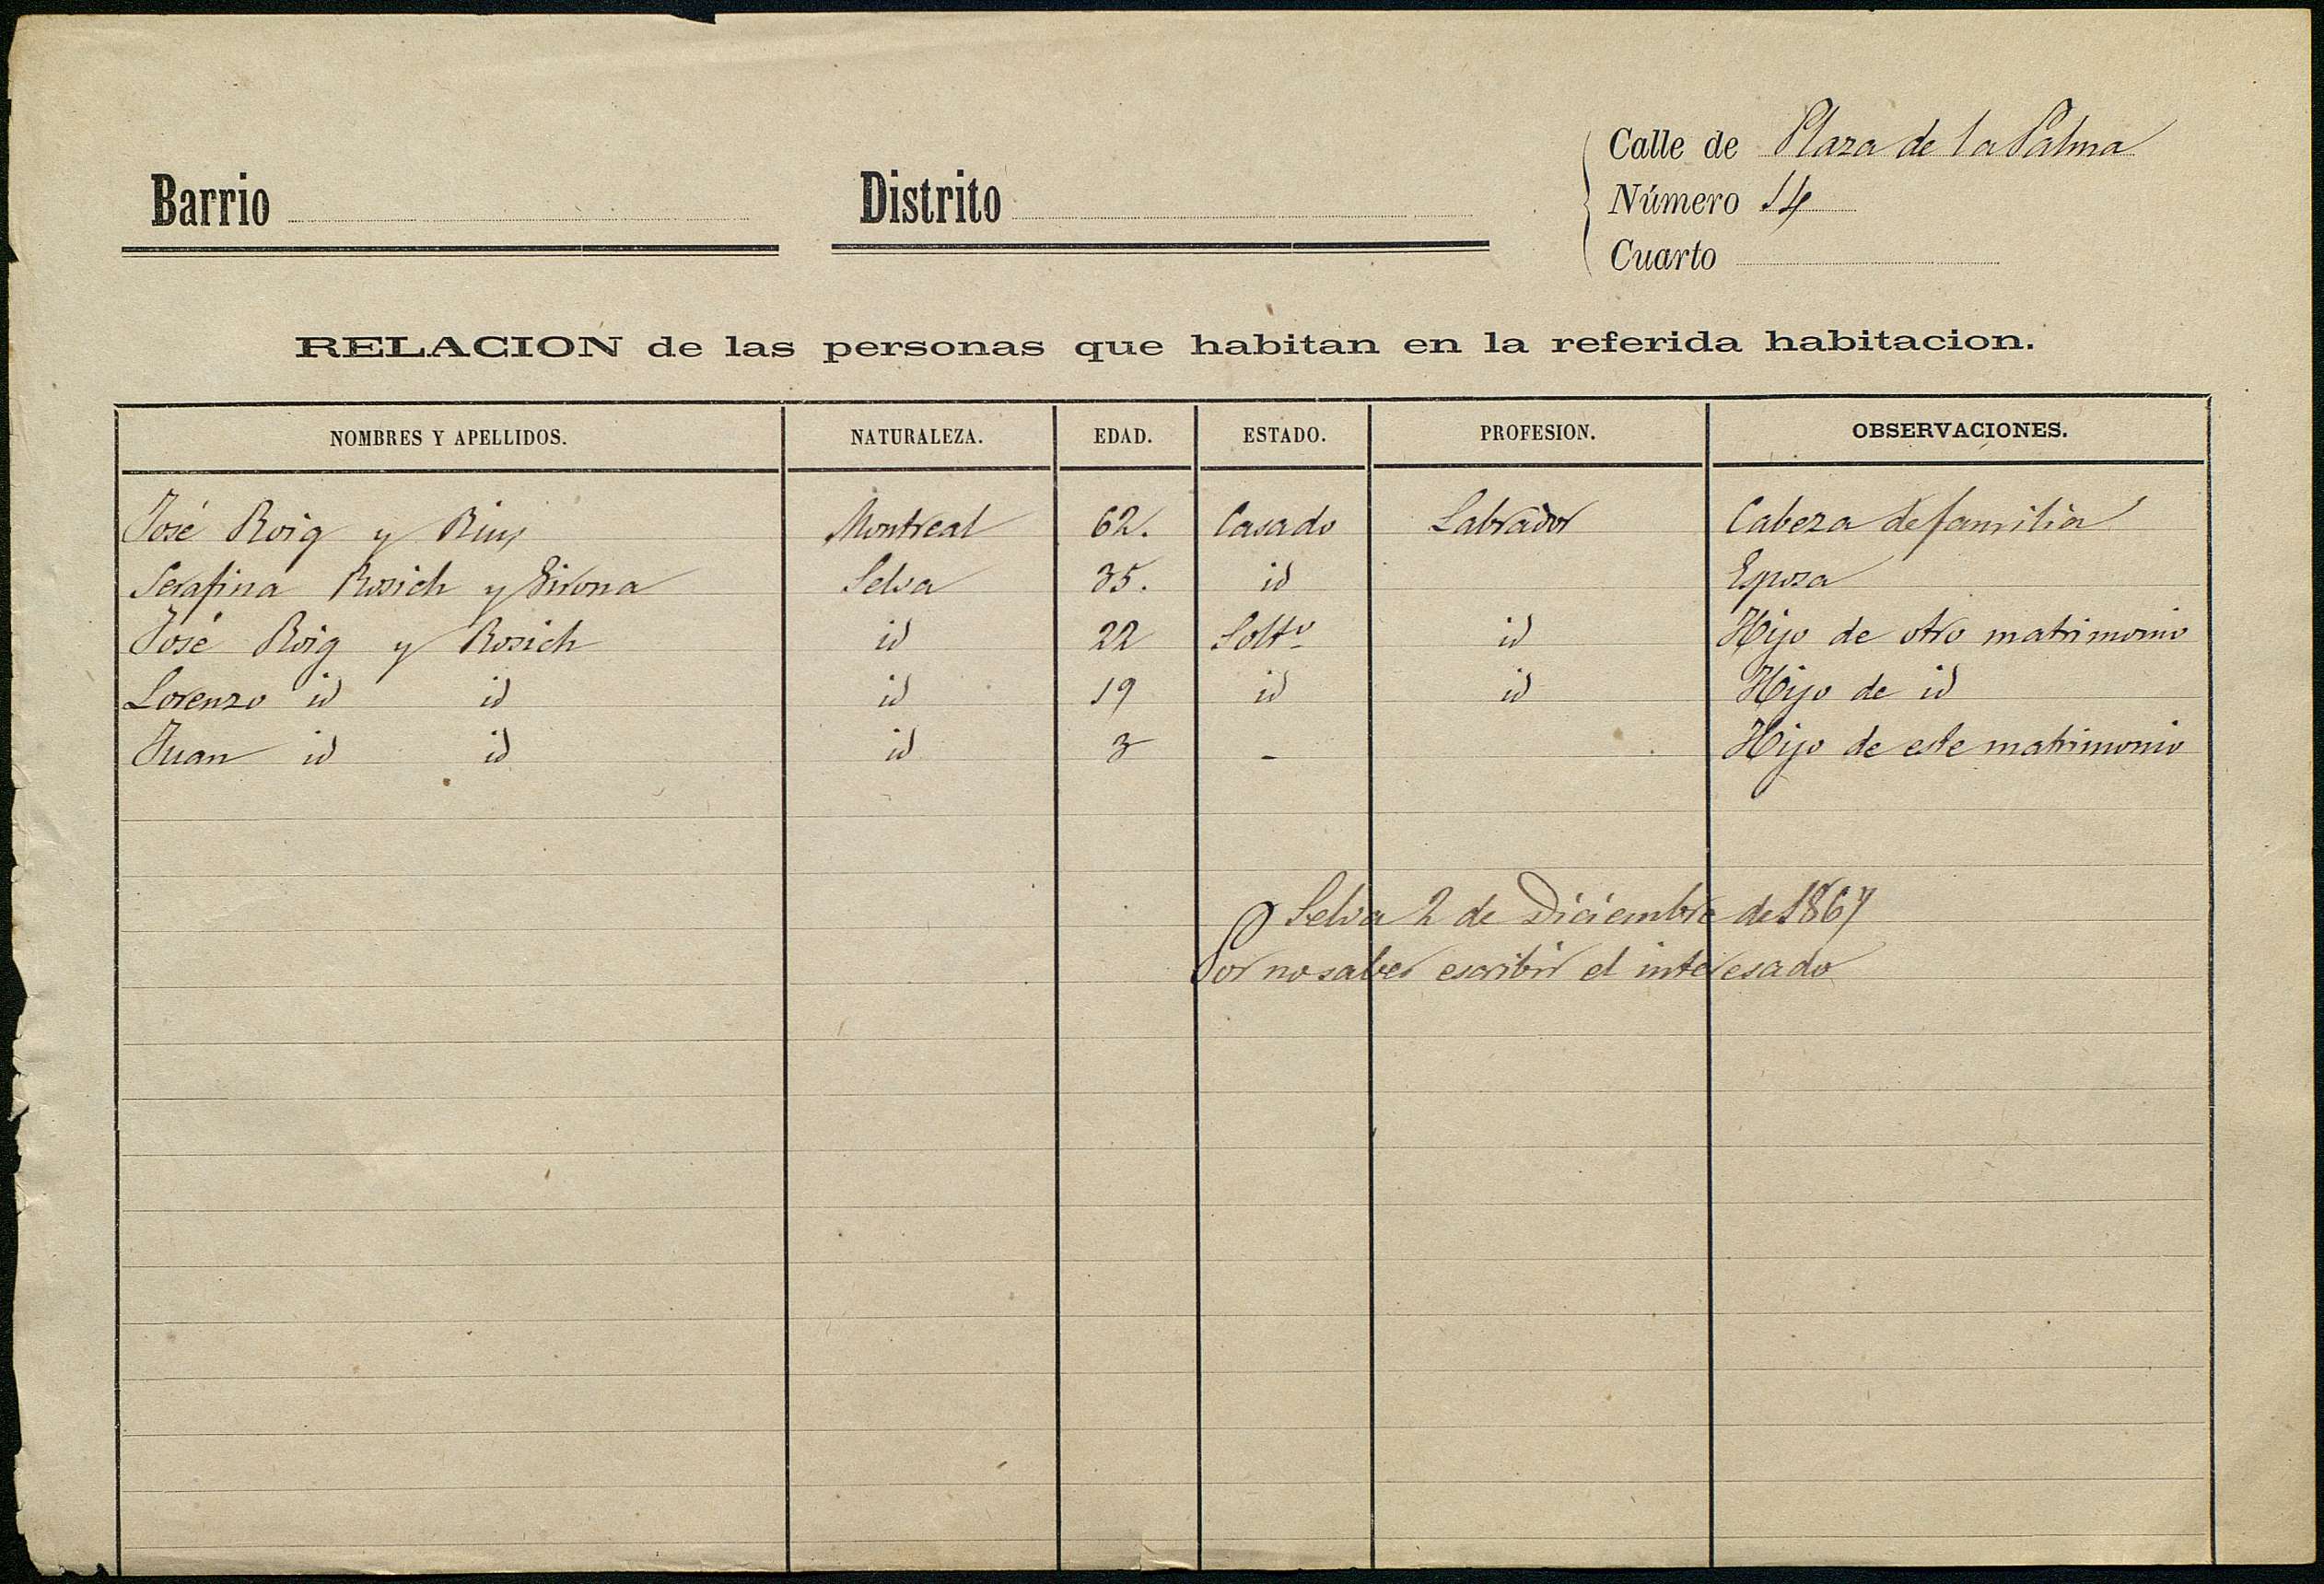 Calle de Plaza de la Palma
Barrio Distrito Número 14
Cuarto
RELACION de las personas que habitan en la referida habitacion.
NOMBRES Y APELLIDOS. NATURALEZA. EDAD. ESTADO. PROFESION. OBSERVACIONES.
José Roig y Rius Montreal 62. Casado Labrador Cabeza de familia
Serafina Rosich y Girona Selva 35. id Esposa
José Roig y Rosich id 22 Solto id Hijo de otro matrimonio
Lorenzo id id id 19 id id Hijo de id
Juan id id id 3 - Hijo de este matrimonio
Selva 2 de Diciembre de 1867
Por no saber escribir el interesado